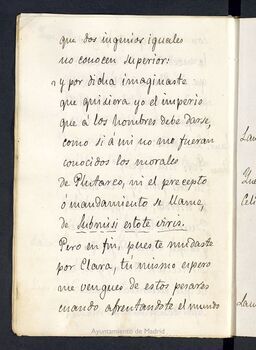 que dos ingenios iguales
no conocen superior:
y por dicha imaginaste
que quisiera yo el imperio
que á los hombres debe darse,
como si á mí no me fueran
conocidos los morales
de Plutarco, ni el precepto
ó mandamiento se llame,
de Submissi estote viris.
Pero en fin, pues te mudaste
por Clara, tú mismo espero
me vengues de estos pesares
cuando afrentandote el mundo
Lau
Lau
Ayuntamiento de Madrid